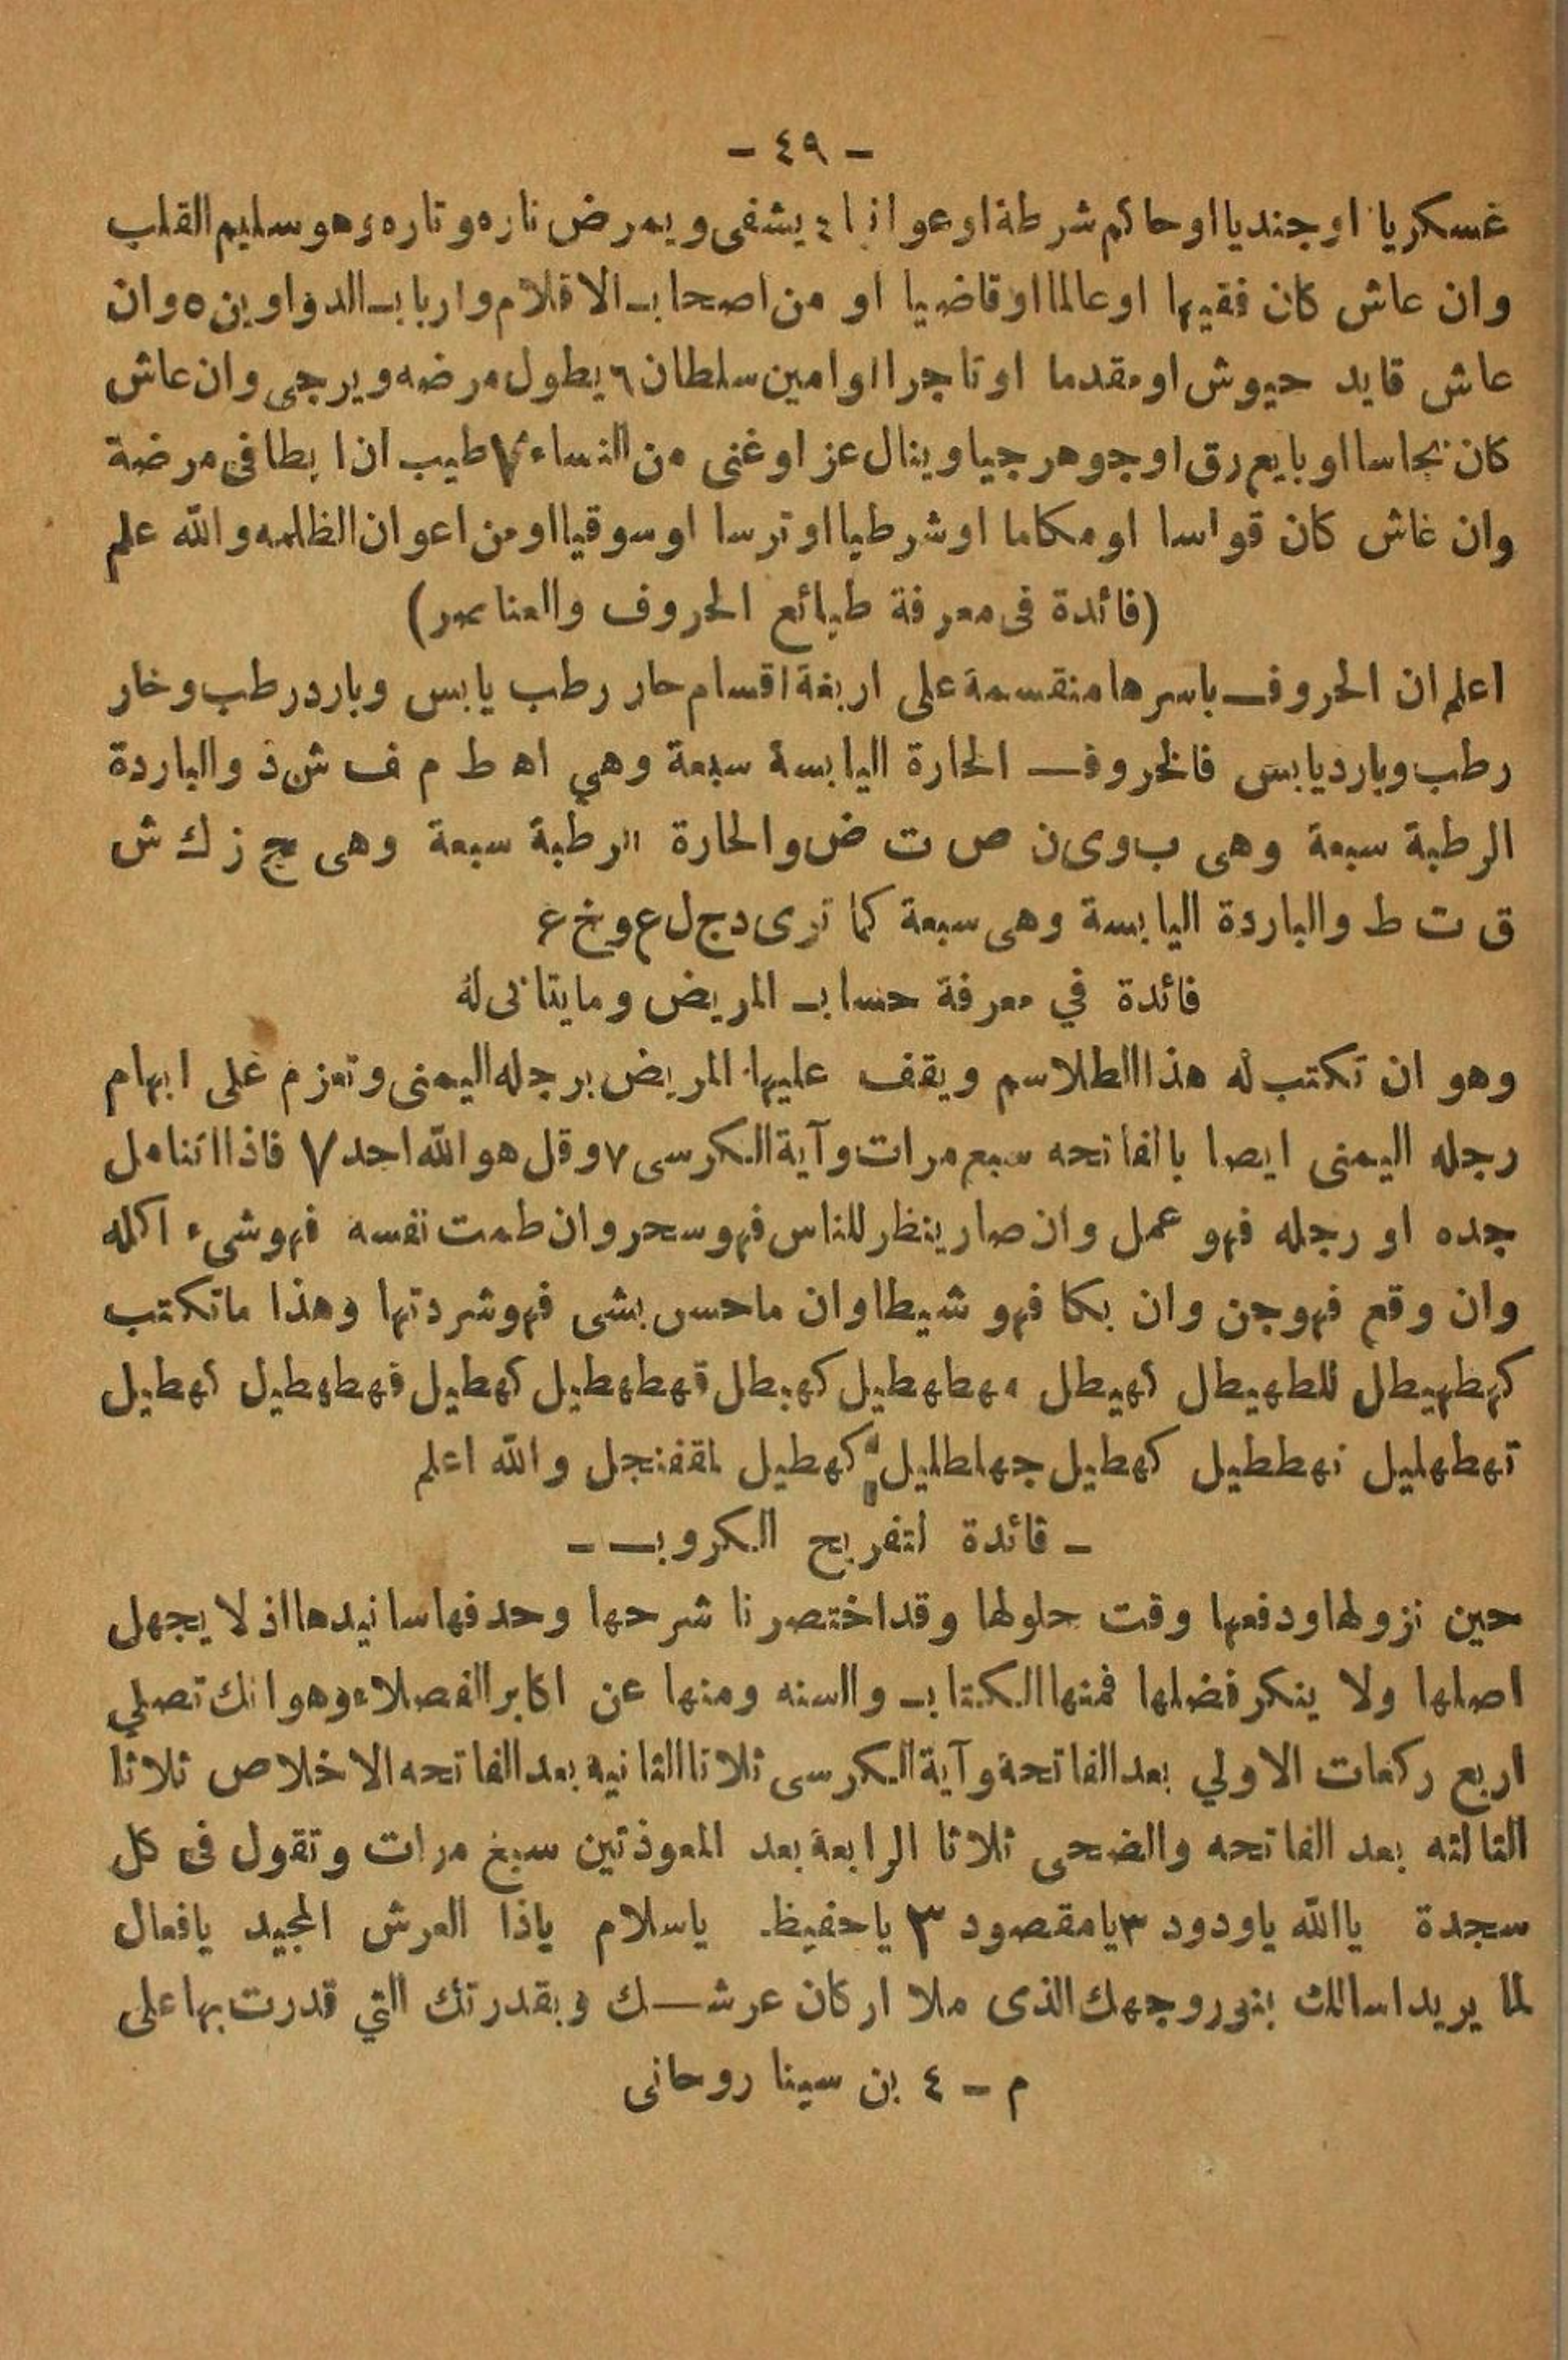 - ٤٩ -
غسكريا اوجنديا اوحاكم شرطة اوعوانيا ٤ يشفى ويمرض ناره وتاره وهو سليم القلب
وان عاش كان فقيها اوعالما اوقاضيا او من اصحاب الاقلام وارباب الدواوين ٥ وان
عاش قايد حيوش اومقدما اوتاجرا اوامين سلطان ٦ يطول مرضه ويرجى وان عاش
كان نجاسا اوبايع رق اوجوهرجيا وينال عز اوغنى من النساء ٧ طيب اذا بطا فى مرضة
وان غاش كان قواسا اومكاما اوشرطيا اوترسا اوسوقيا اومن اعوان الظلمه والله علم
(فائدة فى معرفة طبائع الحروف والعناصر)
اعلم ان الحروف باسرها منقسمة على اربغة اقسام حار رطب يابس وبارد رطب وخار
رطب وبارد يابس فالخروف الحارة اليابسة سبعة وهي اه ط م ف ش ذ والباردة
الرطبة سبعة وهى ب وى ن ص ت ض والحارة الرطبة سبعة وهى ج ز ك ش
ق ت ط والباردة اليابسة وهى سبعة كما ترى دج ل ع وخ غ
فائدة في معرفة حساب المريض ومايتاتى له
وهو ان تكتب له هذا الطلاسم ويقف عليها المريض برجله اليمنى وتعزم غلى ابهام
رجله اليمنى ايصا بالفاتحه سبع مرات وآية الكرسى ٧ وقل هو الله احد ٧ فاذا اتنامل
جده او رجله فهو عمل وان صار ينظر للناس فهو سحر وان طمت نفسه فهو شىء اكله
وان وقع فهو جن وان بكا فهو شيطا وان ماحس بشى فهو شردتها وهذا ماتكتب
كهطهيطل للطهيطال كهيطل مهطهطيل كهبطل قهطهطيل كهطيل فهطهطيل نهطيل
تهطهليل نهططيل كهطيل جهلطليل كهطيل لمقفنجل والله اعلم
- قائدة لتفريح الكروب -
حين نزولها ودفعها وقت حلولها وقد اختصرنا شرحها وحدفها سانيدها اذ لا يجهل
اصلها ولا ينكر فضلها فمنها الكتاب والسنه ومنها عن اكابر الفصلاء وهو انك تصلي
اربع ركعات الاولي بعد الفاتحة وآية الكرسى ثلاثا الثانية بعد الفاتحه الاخلاص ثلاثا
الثالثه بعد الفاتحه والضحى ثلاثا الرابعة بعد المعوذتين سبغ مرات وتقول فى كل
سجدة يا الله ياودود ٣ يامقصود ٣ ياحفيظ ياسلام ياذا العرش المجيد يافعال
لما يريد اسالك بنور وجهك الذى ملا اركان عرشك وبقدرتك التي قدرت بها على
م - ٤ بن سينا روحانى